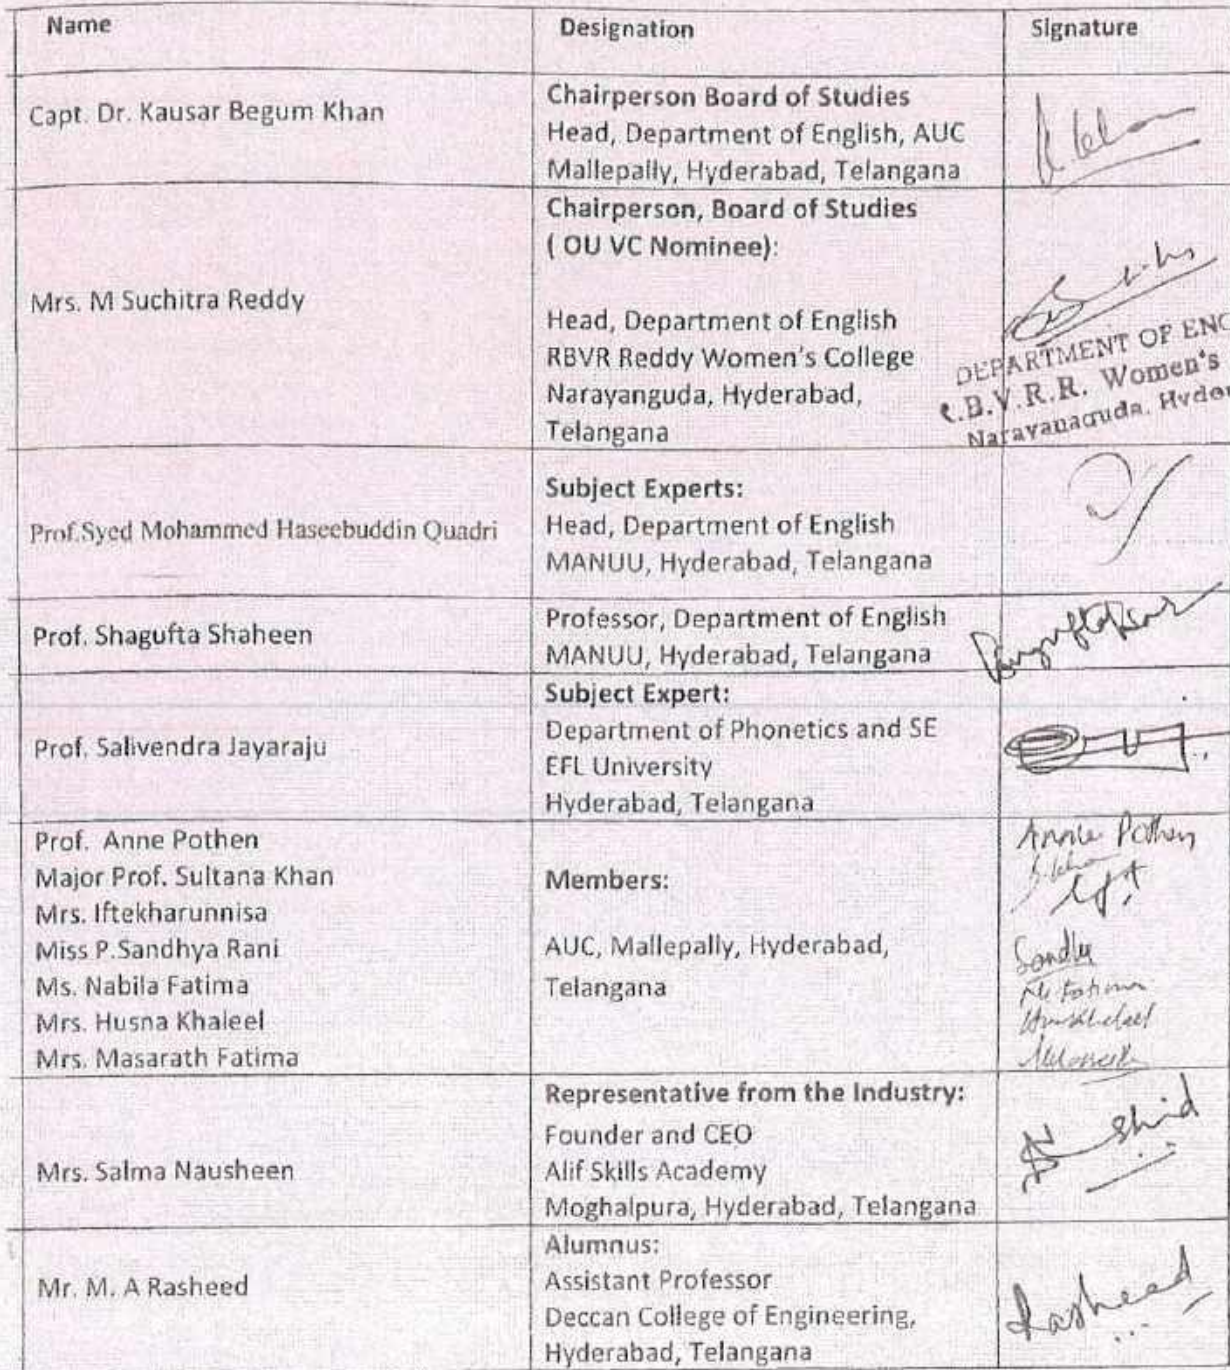 Name Designation Signature
Capt. Dr. Kausar Begum Khan
Chairperson Board of Studies
Head, Department of English, AUC
Mallepally, Hyderabad, Telangana
Mrs. M Suchitra Reddy
Chairperson, Board of Studies
( OU VC Nominee):
Head, Department of English
RBVR Reddy Women's College
Narayanguda, Hyderabad,
Telangana
DEPARTMENT OF ENG
R.B.V.R.R. Women's
Narayanaguda, Hyder
Prof.Syed Mohammed Haseebuddin Quadri
Subject Experts:
Head, Department of English
MANUU, Hyderabad, Telangana
Prof. Shagufta Shaheen
Professor, Department of English
MANUU, Hyderabad, Telangana
Prof. Salivendra Jayaraju
Subject Expert:
Department of Phonetics and SE
EFL University
Hyderabad, Telangana
Prof. Anne Pothen
Major Prof. Sultana Khan
Mrs. Iftekharunnisa
Miss P.Sandhya Rani
Ms. Nabila Fatima
Mrs. Husna Khaleel
Mrs. Masarath Fatima
Members:
AUC, Mallepally, Hyderabad,
Telangana
Annie Pothen
Mrs. Salma Nausheen
Representative from the Industry:
Founder and CEO
Alif Skills Academy
Moghalpura, Hyderabad, Telangana
Mr. M. A Rasheed
Alumnus:
Assistant Professor
Deccan College of Engineering,
Hyderabad, Telangana
Rasheed